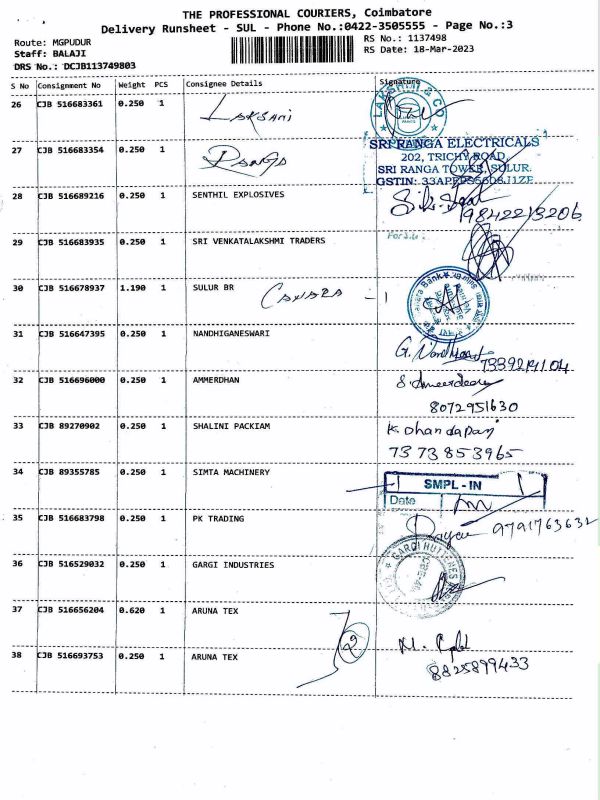 THE PROFESSIONAL COURIERS, Coimbatore
Delivery Runsheet - SUL - Phone No.:0422-3505555 - Page No.:3
Route: MGPUDUR
RS No.: 1137498
Staff: BALAJI
RS Date: 18-Mar-2023
DRS No.: DCJB113749803
S No Consignment No Weight PCS Consignee Details Signature
26 CJB 516683361 0.250 1 LAKSHMI
LAKSHMI & CO
27 CJB 516683354 0.250 1 RANGA
SRI RANGA ELECTRICALS
202, TRICHY ROAD,
SRI RANGA TOWER, SULUR.
28 CJB 516689216 0.250 1 SENTHIL EXPLOSIVES
9842213206
29 CJB 516683935 0.250 1 SRI VENKATALAKSHMI TRADERS
30 CJB 516678937 1.190 1 SULUR BR CANARA - 1
31 CJB 516647395 0.250 1 NANDHIGANESWARI
32 CJB 516696000 0.250 1 AMMERDHAN
8072951630
33 CJB 89270902 0.250 1 SHALINI PACKIAM K. Dhandapani
7373853965
34 CJB 89355785 0.250 1 SIMTA MACHINERY SMPL - IN
Date
35 CJB 516683798 0.250 1 PK TRADING 9791763632
36 CJB 516529032 0.250 1 GARGI INDUSTRIES
37 CJB 516656204 0.620 1 ARUNA TEX
2
38 CJB 516693753 0.250 1 ARUNA TEX 8825899433